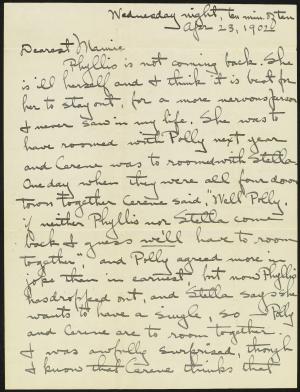 Wednesday night, ten min. of ten
Apr 23, 1902
Dearest Mamie
Phyllis is not coming back. She
is ill herself and I think it is best for
her to stay out, for a more nervous person
I never saw in my life. She was to
have roomed with Polly next year
and Cerene was to room with Stella.
One day when they were all four down
town together Cerene said, "Well Polly,
if neither Phyllis nor Stella come
back I guess we'll have to room
together", and Polly agreed more in
joke than in earnest but now Phyllis
has dropped out, and Stella says she
wants to have a single, so — Polly
and Cerene are to room together.
I was awfully surprised, though
I know that Cerene thinks that